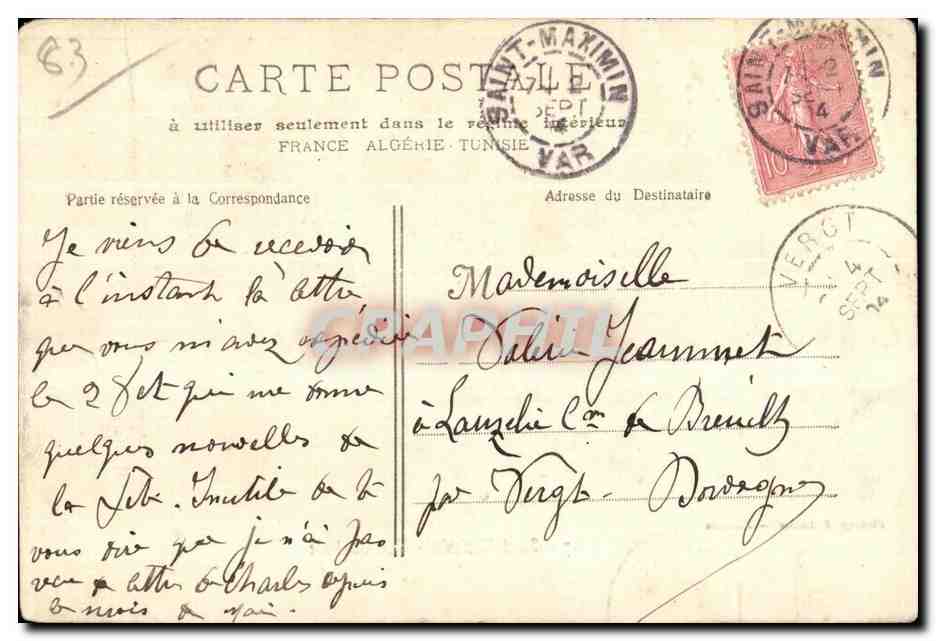 83
CARTE POSTALE
à utiliser seulement dans le régime intérieur
FRANCE ALGÉRIE - TUNISIE
SAINT-MAXIMIN
2
SEPT
4
VAR
SAINT-MAXIMIN
2
SEPT
4
VAR
10
Partie réservée à la Correspondance
Adresse du Destinataire
VERGT
4
SEPT
Je viens de recevoir
à l'instant la lettre
que vous m'avez expédiée
le 2 et qui me donne
quelques nouvelles de
la fête. Inutile de
vous dire que je n'ai pas
reçu de lettre de Charles depuis
le mois de
Mademoiselle
Jeammet
à Lauzelie Cne de Breuilh
par Vergt - Dordogne
GRAPHIL